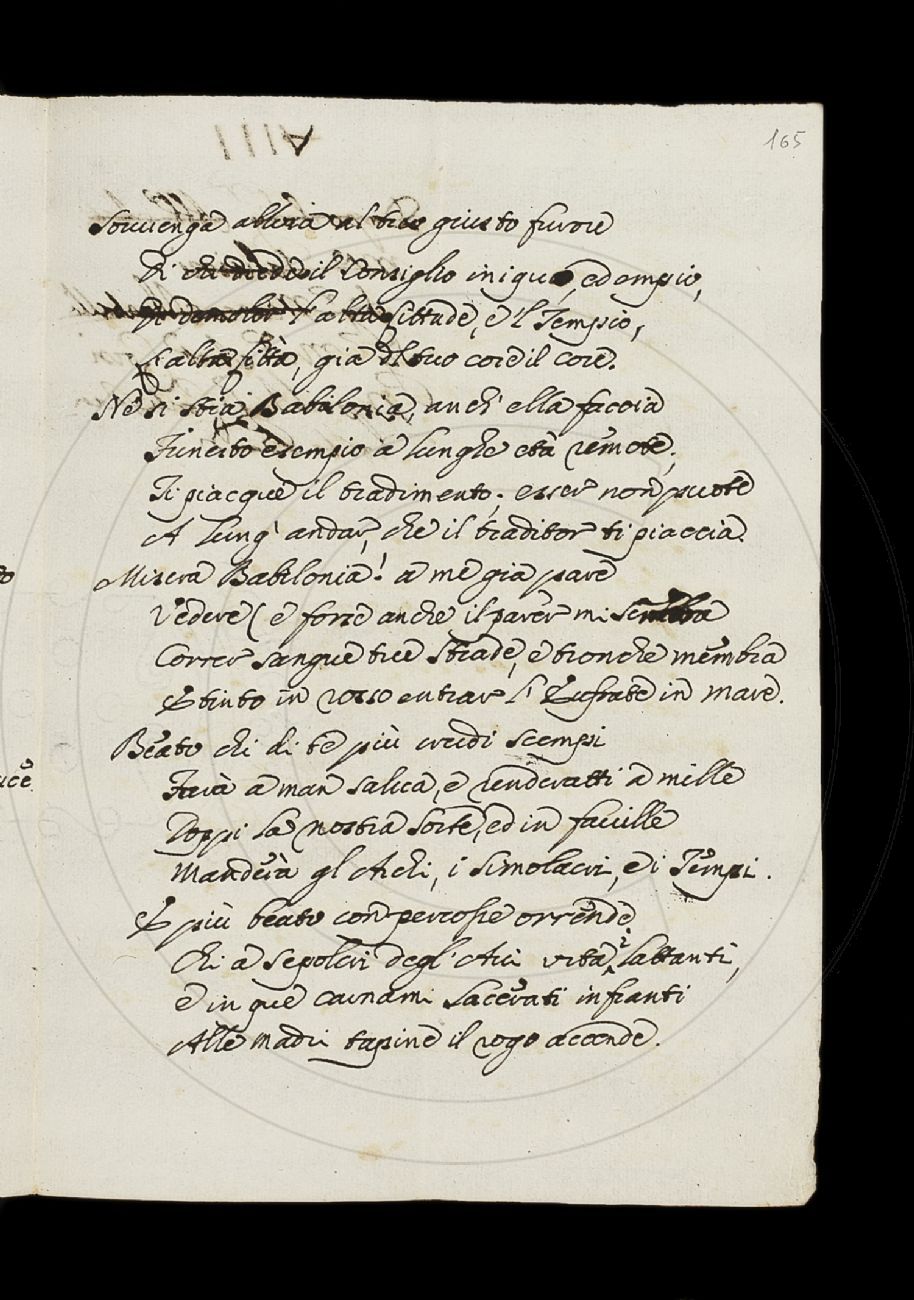 165
Souvenga allora al tuo giusto furore
Di chi diede il Consiglio iniquo, ed empio,
Di demolir l'alta Cittade, e 'l Tempio,
L'alta Città, già del tuo core il core.
Nè si stia Babilonia, anch' ella faccia
Funesto esempio a lunghe età remote,
Ti piacque il tradimento; esser non puote
A lung' andar, che il traditor ti piaccia.
Misera Babilonia! a me già pare
Vedere (e forse anche il parer mi sembra
Correr sangue tue Strade, e tronche membra
E tinto in rosso entrar l' Eufrate in mare.
Beato chi di te più crudi scempi
Farà a man salva, e renderatti a mille
Doppj la nostra sorte, ed in faville
Manderà gl' Archi, i Simolacri, e i Tempi.
E più beato con percosse orrende
Chi a sepolcri degl' Avi urta i lattanti,
e in que' carnami lacerati infranti
Alle madri tapine il rogo accende.